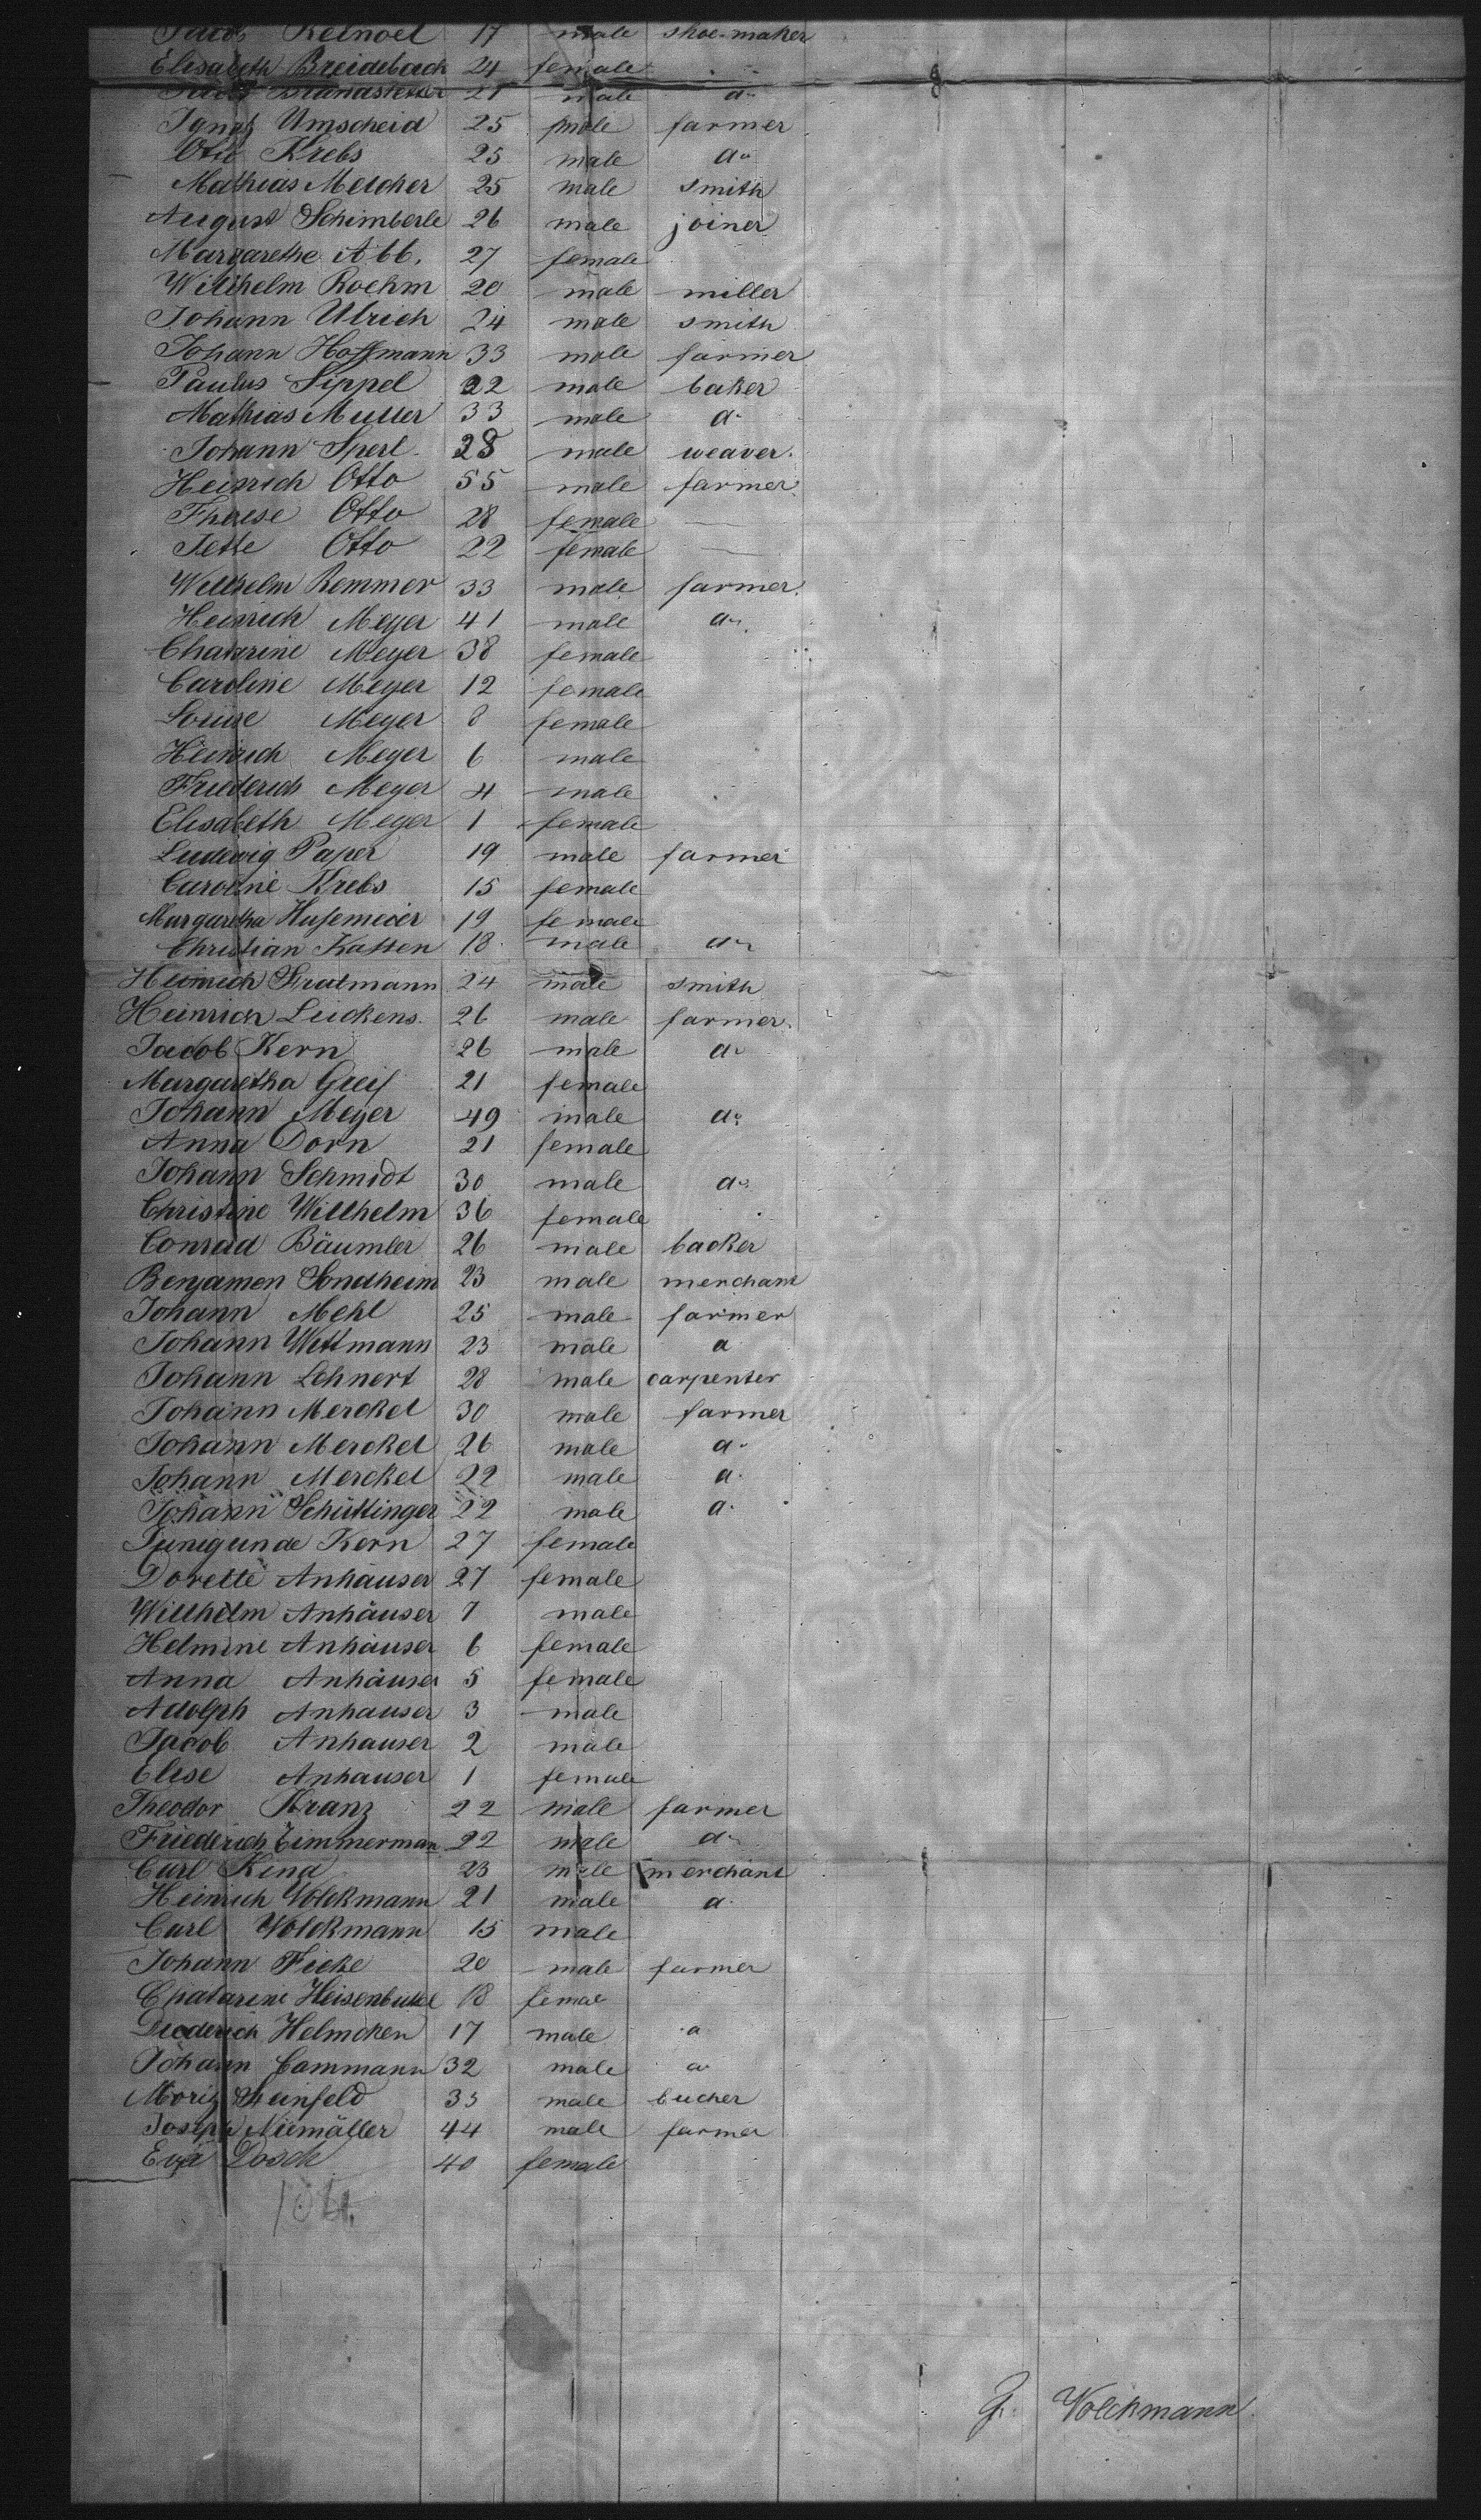 Jacob Kelnoel 17 male shoe-maker
Elisabeth Breidebach 24 female
Jacob Brandstetter 21 male a
Ignatz Umscheid 25 male farmer
Otto Krebs 25 male a
Mathias Melcher 25 male smith
August Schimberle 26 male joiner
Margarethe Abb. 27 female
Willhelm Roehm 20 male miller
Johann Ulrich 24 male smith
Johann Hoffmann 33 male farmer
Paulus Sippel 22 male baker
Mathias Muller 33 male a
Johann Sperl 28 male weaver.
Heinrich Otto 55 male farmer
Therese Otto 28 female —
Jette Otto 22 female —
Willhelm Remmer 33 male farmer.
Heinrich Meyer 41 male a
Chatarine Meyer 38 female
Caroline Meyer 12 female
Louise Meyer 8 female
Heinrich Meyer 6 male
Friederich Meyer 4 male
Elisabeth Meyer 1 female
Ludewig Paper 19 male farmer
Caroline Krebs 15 female
Margaretha Husemeier 19 female
Christian Katten 18 male a
Heinrich Stratmann 24 male smith
Heinrich Luckens. 26 male farmer.
Jacob Kern 26 male a
Margaretha Greif 21 female
Johann Meyer 49 male a
Anna Dorn 21 female
Johann Schmidt 30 male a
Christine Willhelm 36 female
Conrad Bäumler 26 male backer
Benjamen Sondheim 23 male merchant
Johann Mehl 25 male farmer
Johann Wittmann 23 male a
Johann Lehnert 28 male carpenter
Johann Merckel 30 male farmer
Johann Merckel 26 male a
Johann Merckel 22 male a
Johann Schüttinger 22 male a
Kunigunde Kern 27 female
Dorette Anhäuser 27 female
Willhelm Anhäuser 7 male
Helmine Anhäuser 6 female
Anna Anhäuser 5 female
Adolph Anhauser 3 male
Jacob Anhauser 2 male
Elise Anhauser 1 female
Theodor Kranz 22 male farmer
Friederich Zimmerman 22 male a
Carl Kind 23 male merchant
Heinrich Volckmann 21 male a
Carl Volckmann 15 male
Johann Ficke 20 male farmer
Chatarine Heisenbuttel 18 femal
Diederich Helmcken 17 male a
Johann Cammann 32 male a
Moriz Steinfeld 35 male bucher
Joseph Niemäller 44 male farmer
Eva Dosch 40 female
J. Volckmann